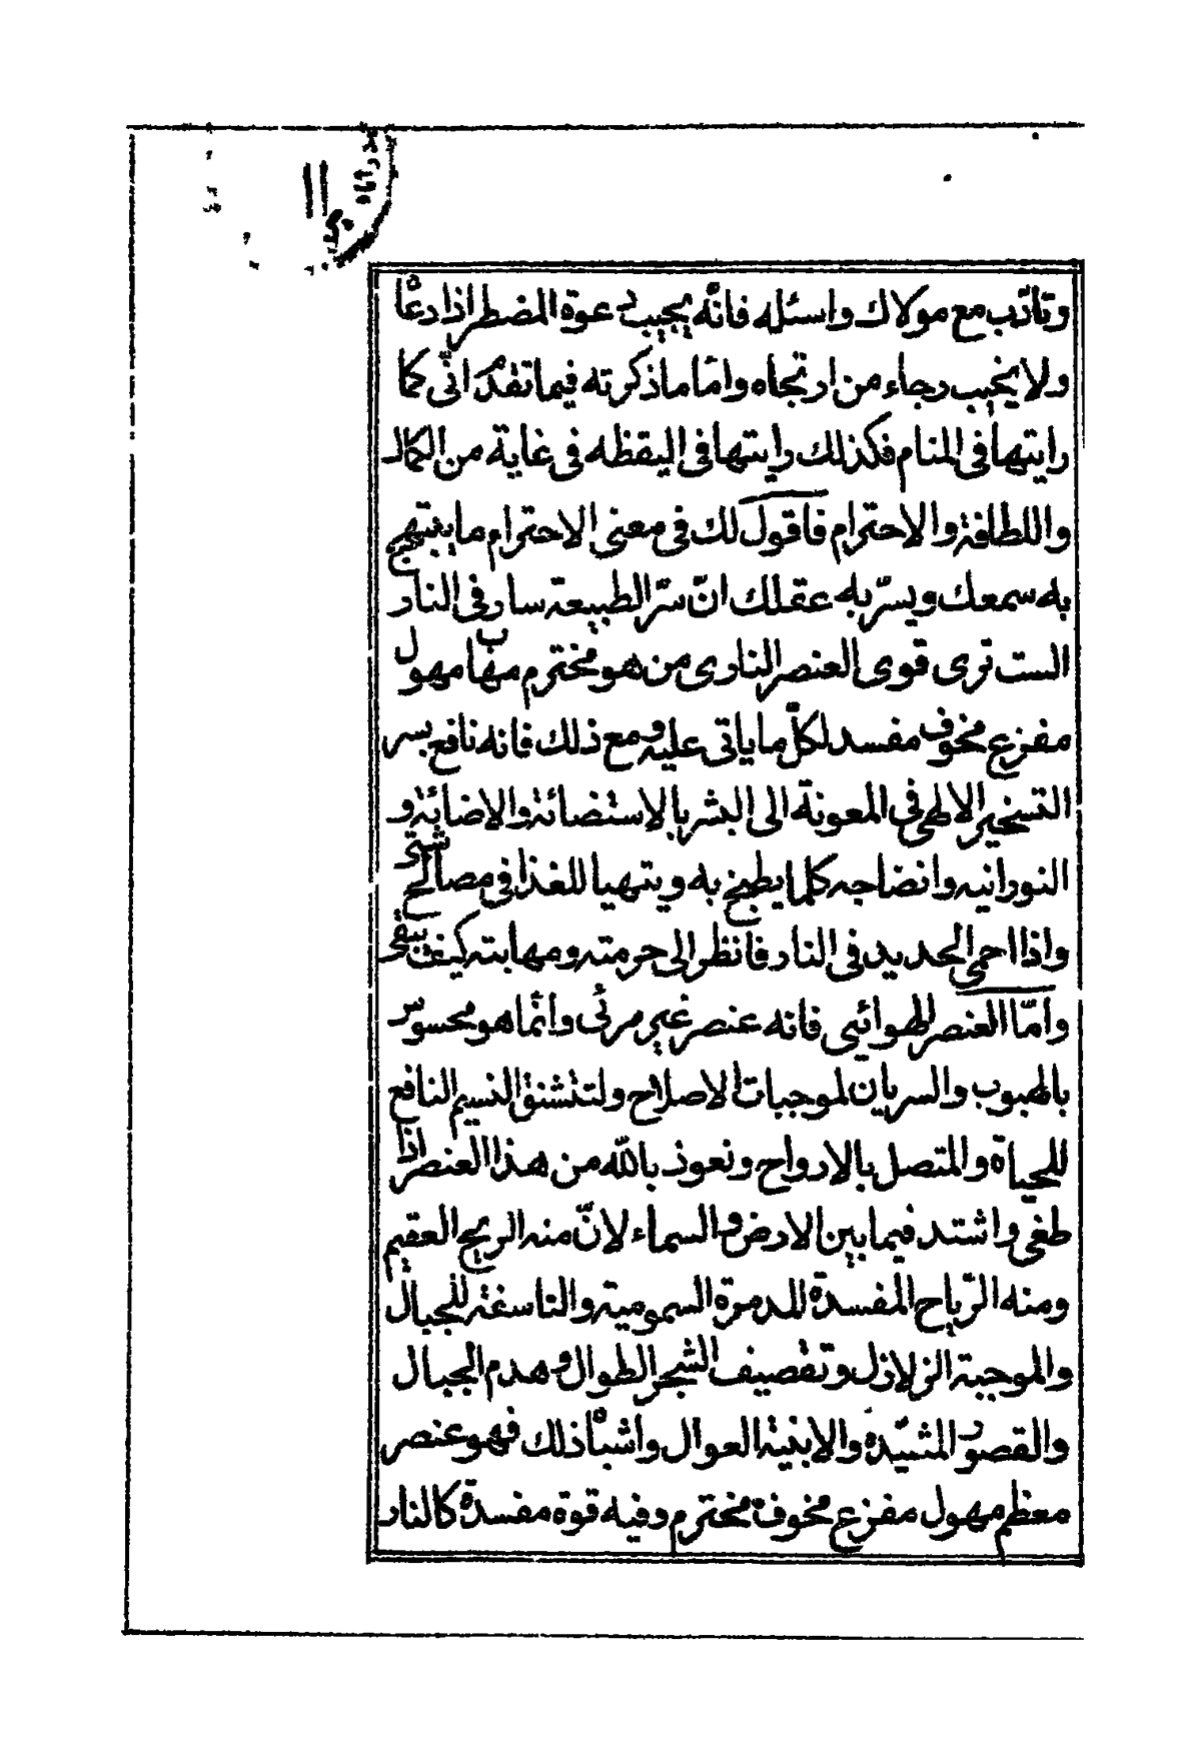 وتأدّب مع مولاك واسئله فانّه يجيب دعوة المضطر اذا دعاه
ولا يخيب رجاء من ارتجاه وامّا ما ذكرته فيما تقدّم انّى كما
رايتها فى المنام فكذلك رايتها فى اليقظه فى غاية من الكمال
واللطافة والاحترام فاقول لك فى معنى الاحترام ما يبتهج
به سمعك ويسرّ به عقلك انّ سرّ الطبيعة سار فى النار
الست ترى قوى العنصر النارى من هو محترم مهاب مهول
مفزع مخوف مفسد لكلّ ما ياتى عليه ومع ذلك فانه نافع بسر
التسخير الالهى فى المعونة الى البشر بالاستضائة والاضائة و
النورانيه وانضاجه كلما يطبخ به ويتهيا للغذا فى مصالح شتى
واذا احمى الحديد فى النار فانظر الى حرمته ومهابته كيف يتقى
وامّا العنصر الهوائى فانه عنصر غير مرئى وانّما هو محسوس
بالهبوب والسريان لموجبات الاصلاح ولتنشق النسيم النافع
للحياة والمتصل بالارواح ونعوذ بالله من هذا العنصر اذا
طغى واشتد فيما بين الارض والسماء لانّ منه الريح العقيم
ومنه الرّياح المفسدة المدمرة السمومية والناسفة للجبال
والموجبة الزلازل وتقصيف الشجر الطوال وهدم الجبال
والقصور المشيّدة والابنية العوال واشباه ذلك فهو عنصر
معظم مهول مفزع مخوف محترم وفيه قوة مفسدة كالنار